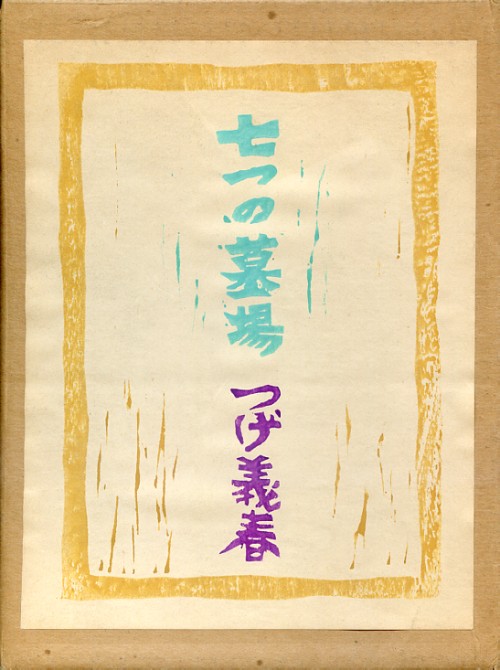 七つの墓場
つげ義春